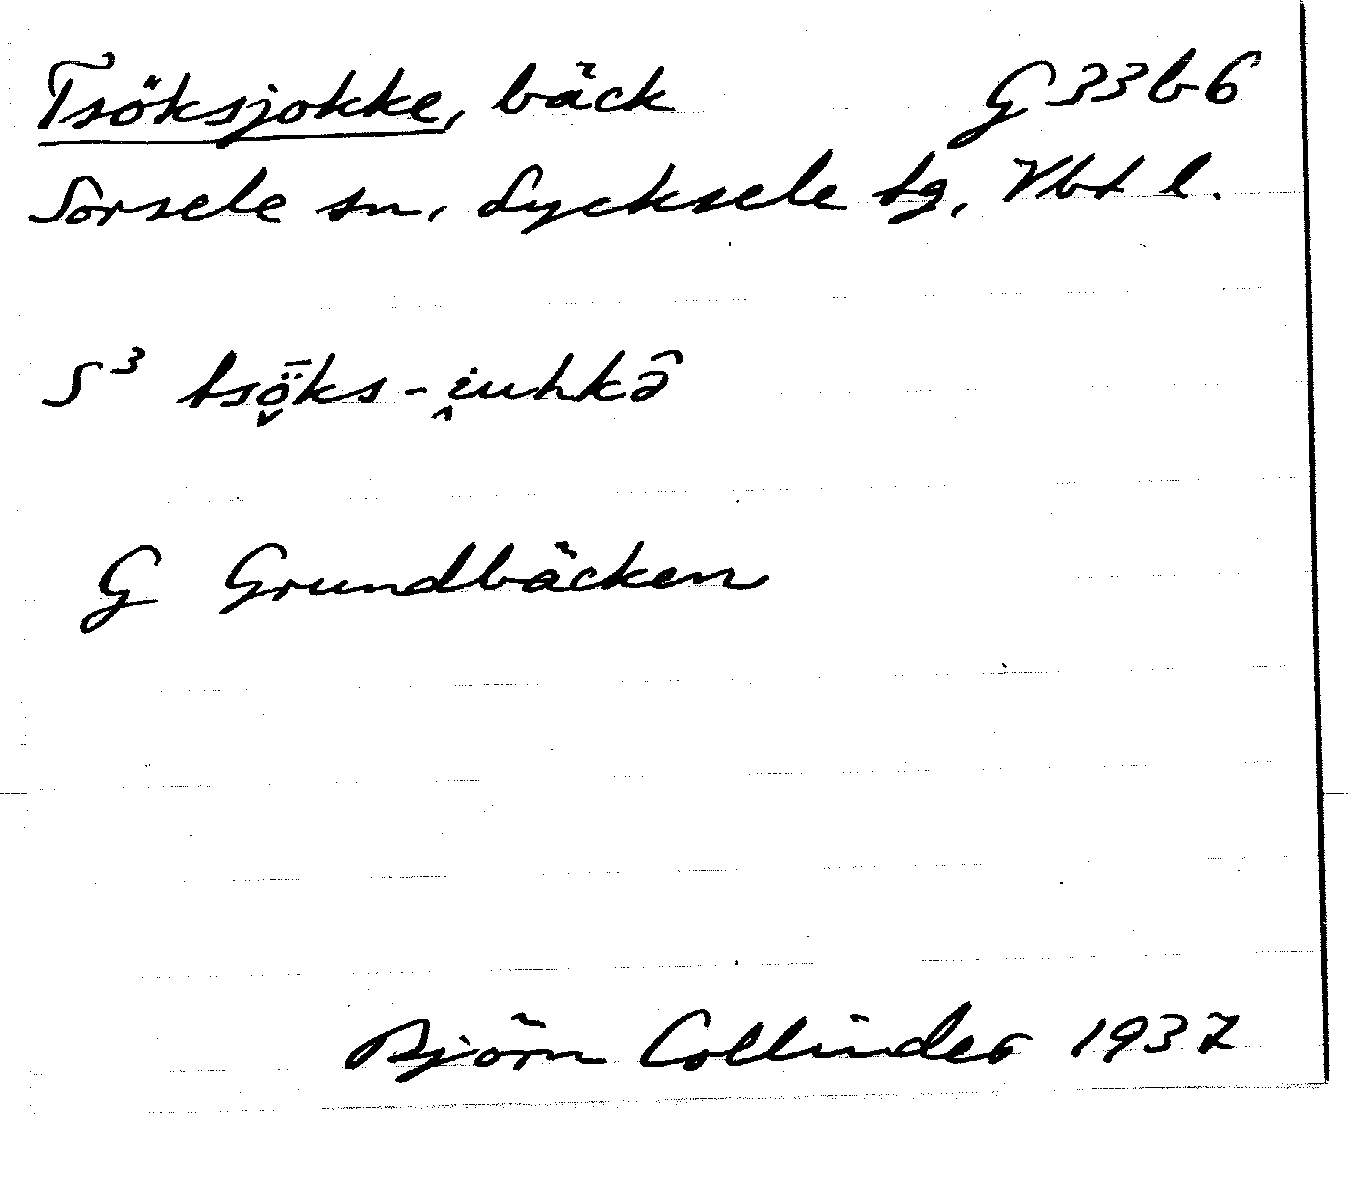 Tsöksjokke, bäck G 33 b 6
Sorsele sn, Lycksele tg, Vbt l.
S³ tsȫ̬ks-i̭uhkə̑
G Grundbäcken
Björn Collinder 1937